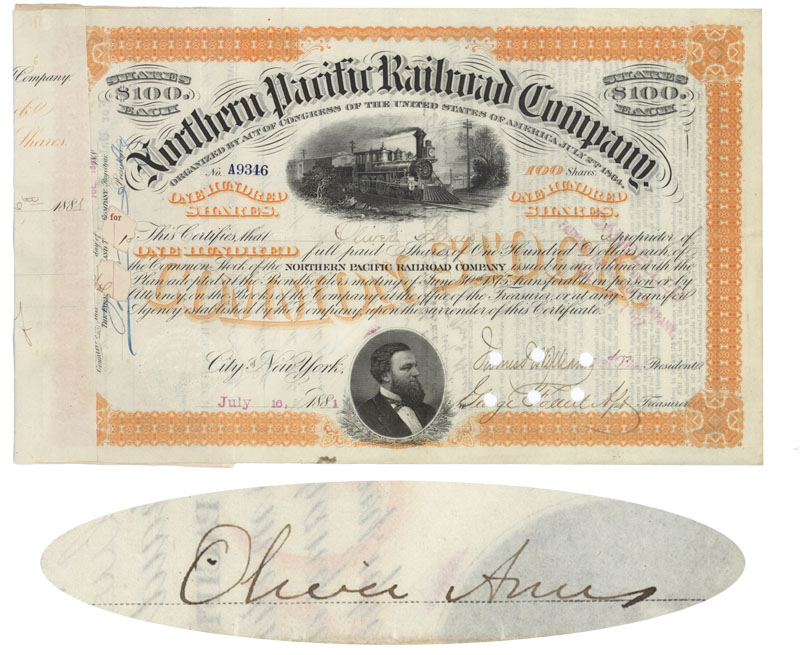 Company.
Shares.
1881
for
SHARES
$100.
EACH
SHARES
$100.
EACH
Northern Pacific Railroad Company.
ORGANIZED BY ACT OF CONGRESS OF THE UNITED STATES OF AMERICA JULY 2ND 1864.
No. A9346
100 Shares.
ONE HUNDRED
SHARES.
ONE HUNDRED
SHARES.
COMMON STOCK
This Certifies, that Oliver Ames is proprietor of
ONE HUNDRED full paid Shares of One Hundred Dollars each of
the Common Stock of the NORTHERN PACIFIC RAILROAD COMPANY issued in accordance with the
Plan adopted at the Bondholders meeting of June 30th 1875, transferable in person or by
Attorney, on the Books of the Company, at the office of the Treasurer, or at any Transfer
Agency established by the Company, upon the surrender of this Certificate.
City of New York,
President
July 16, 1881
George Treasurer
Oliver Ames